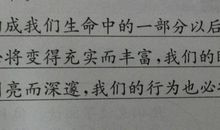 成我们生命中的一部分以后
将变得充实而丰富,我们的
亮而深邃,我们的行为也必